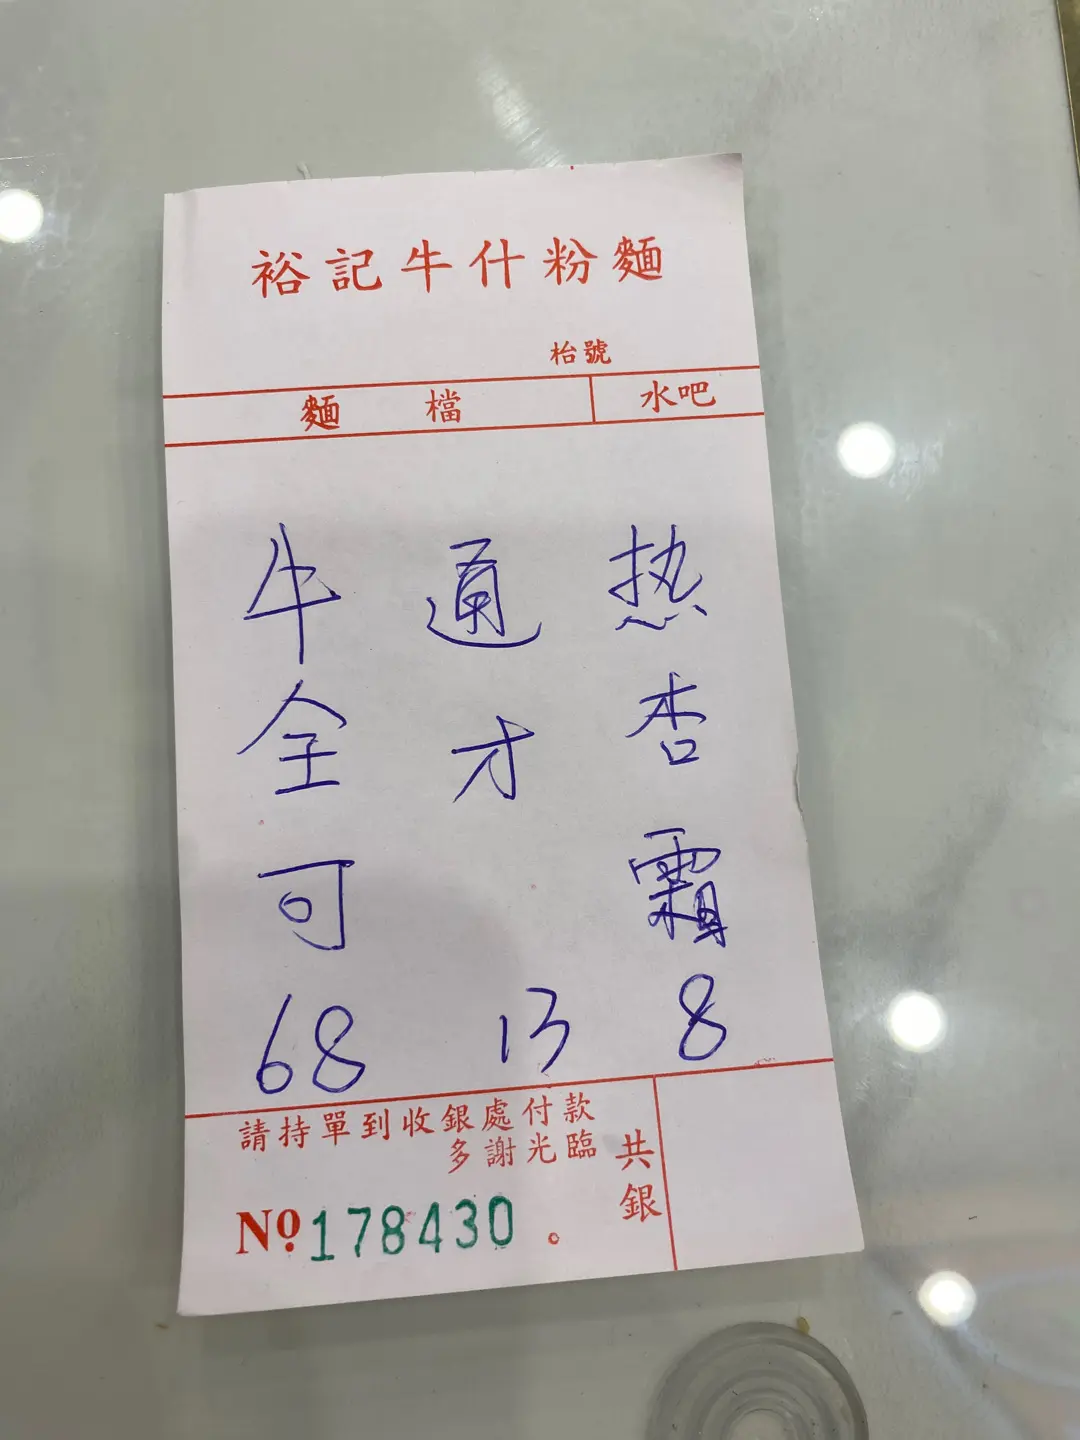 裕記牛什粉麵
枱號
麵檔 水吧
牛全可
通才
热杏霜
68 13 8
請持單到收銀處付款
多謝光臨
共銀
Nº 178430